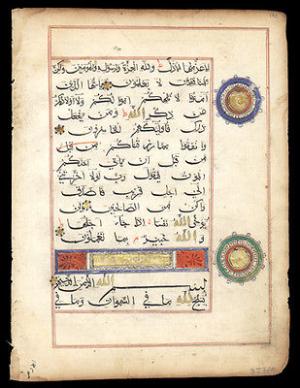 الاعز منها الاذل ولله العزة ولرسوله وللمؤمنين ولكن
المنافقين لا يعلمون يا ايها الذين
آمنوا لا تلهكم اموالكم ولا اولادكم
عن ذكر الله ومن يفعل
ذلك فاولئك هم الخاسرون
وانفقوا مما رزقناكم من
قبل ان ياتي احدكم
الموت فيقول رب لولا اخرتني
الى اجل قريب فاصدق
واكن من الصالحين ولن
يؤخر الله نفسا اذا جاء اجلها
والله خبير بما تعملون
بسم الله الرحمن الرحيم
يسبح لله ما في السموات وما في